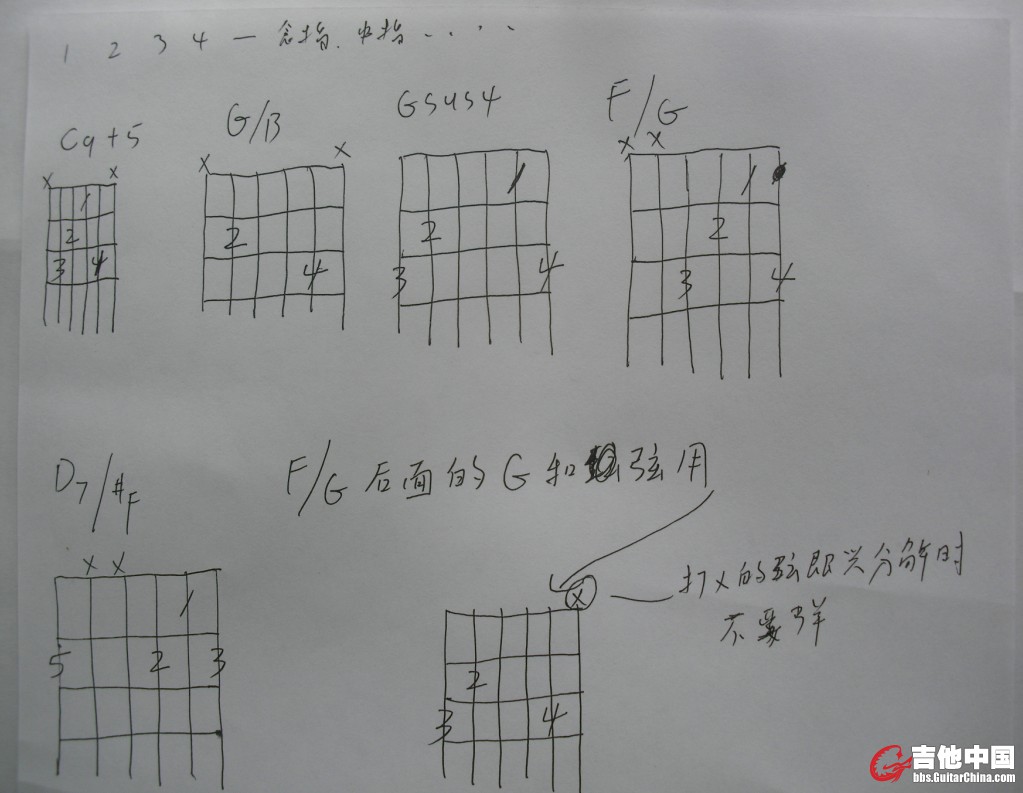 1 2 3 4 — 食指、中指 ....
C9+5
G/B
Gsus4
F/G
x x
x x
x x
1
2
3 4
2
4
1
2
3 4
1
2
3 4
D7/#F
x x
1
5 2 3
F/G 后面的G和弦用
x
2
3 4
打x的弦即兴分解时
不要弹
吉他中国
bbs.GuitarChina.com